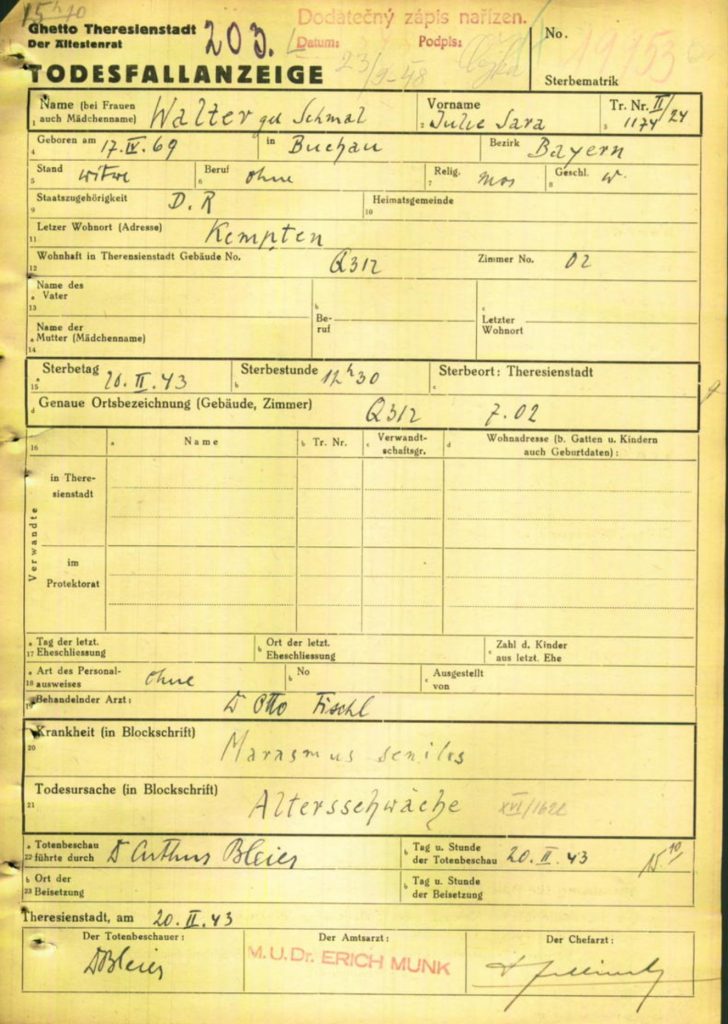 15h10
Ghetto Theresienstadt 203.
Der Ältestenrat
Dodatečný zápis nařízen.
Datum: Podpis:
23/9-48
No.
TODESFALLANZEIGE
Sterbematrik
1 Name (bei Frauen auch Mädchenname) Walter geb Schmal
2 Vorname Julie Sara
3 Tr. Nr. II/24 1174
4 Geboren am 17.IV.69 in Buchau Bezirk Bayern
5 Stand witwe 6 Beruf ohne 7 Relig. mos 8 Geschl. w.
9 Staatszugehörigkeit D.R 10 Heimatsgemeinde
11 Letzer Wohnort (Adresse) Kempten
12 Wohnhaft in Theresienstadt Gebäude No. Q312 Zimmer No. 02
13 a Name des Vater
14 a Name der Mutter (Mädchenname)
b Beruf
c Letzter Wohnort
15 a Sterbetag 20.II.43 b Sterbestunde 12h30 c Sterbeort: Theresienstadt
d Genaue Ortsbezeichnung (Gebäude, Zimmer) Q312 Z.02
16 a Name b Tr. Nr. c Verwandtschaftsgr. d Wohnadresse (b. Gatten u. Kindern auch Geburtdaten):
Verwandte
in Theresienstadt
im Protektorat
17 a Tag der letzt. Eheschliessung b Ort der letzt. Eheschliessung c Zahl d. Kinder aus letzt. Ehe
18 a Art des Personalausweises ohne b No c Ausgestellt von
19 Behandelnder Arzt: Dr Otto Fischl
20 Krankheit (in Blockschrift) Marasmus seniles
21 Todesursache (in Blockschrift) Altersschwäche XVI/162
22 a Totenbeschau führte durch Dr Arthur Bleier b Tag u. Stunde der Totenbeschau 20.II.43 15 10/
23 b Ort der Beisetzung b Tag u. Stunde der Beisetzung
Theresienstadt, am 20.II.43
Der Totenbeschauer: Der Amtsarzt: Der Chefarzt:
DBleier M.U.Dr. ERICH MUNK